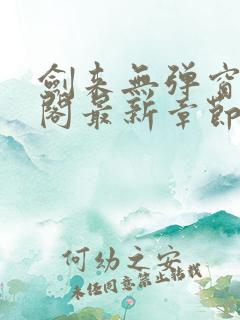 劍来無弹窗
閣最新章節
何幼之安
未经同意禁止转载